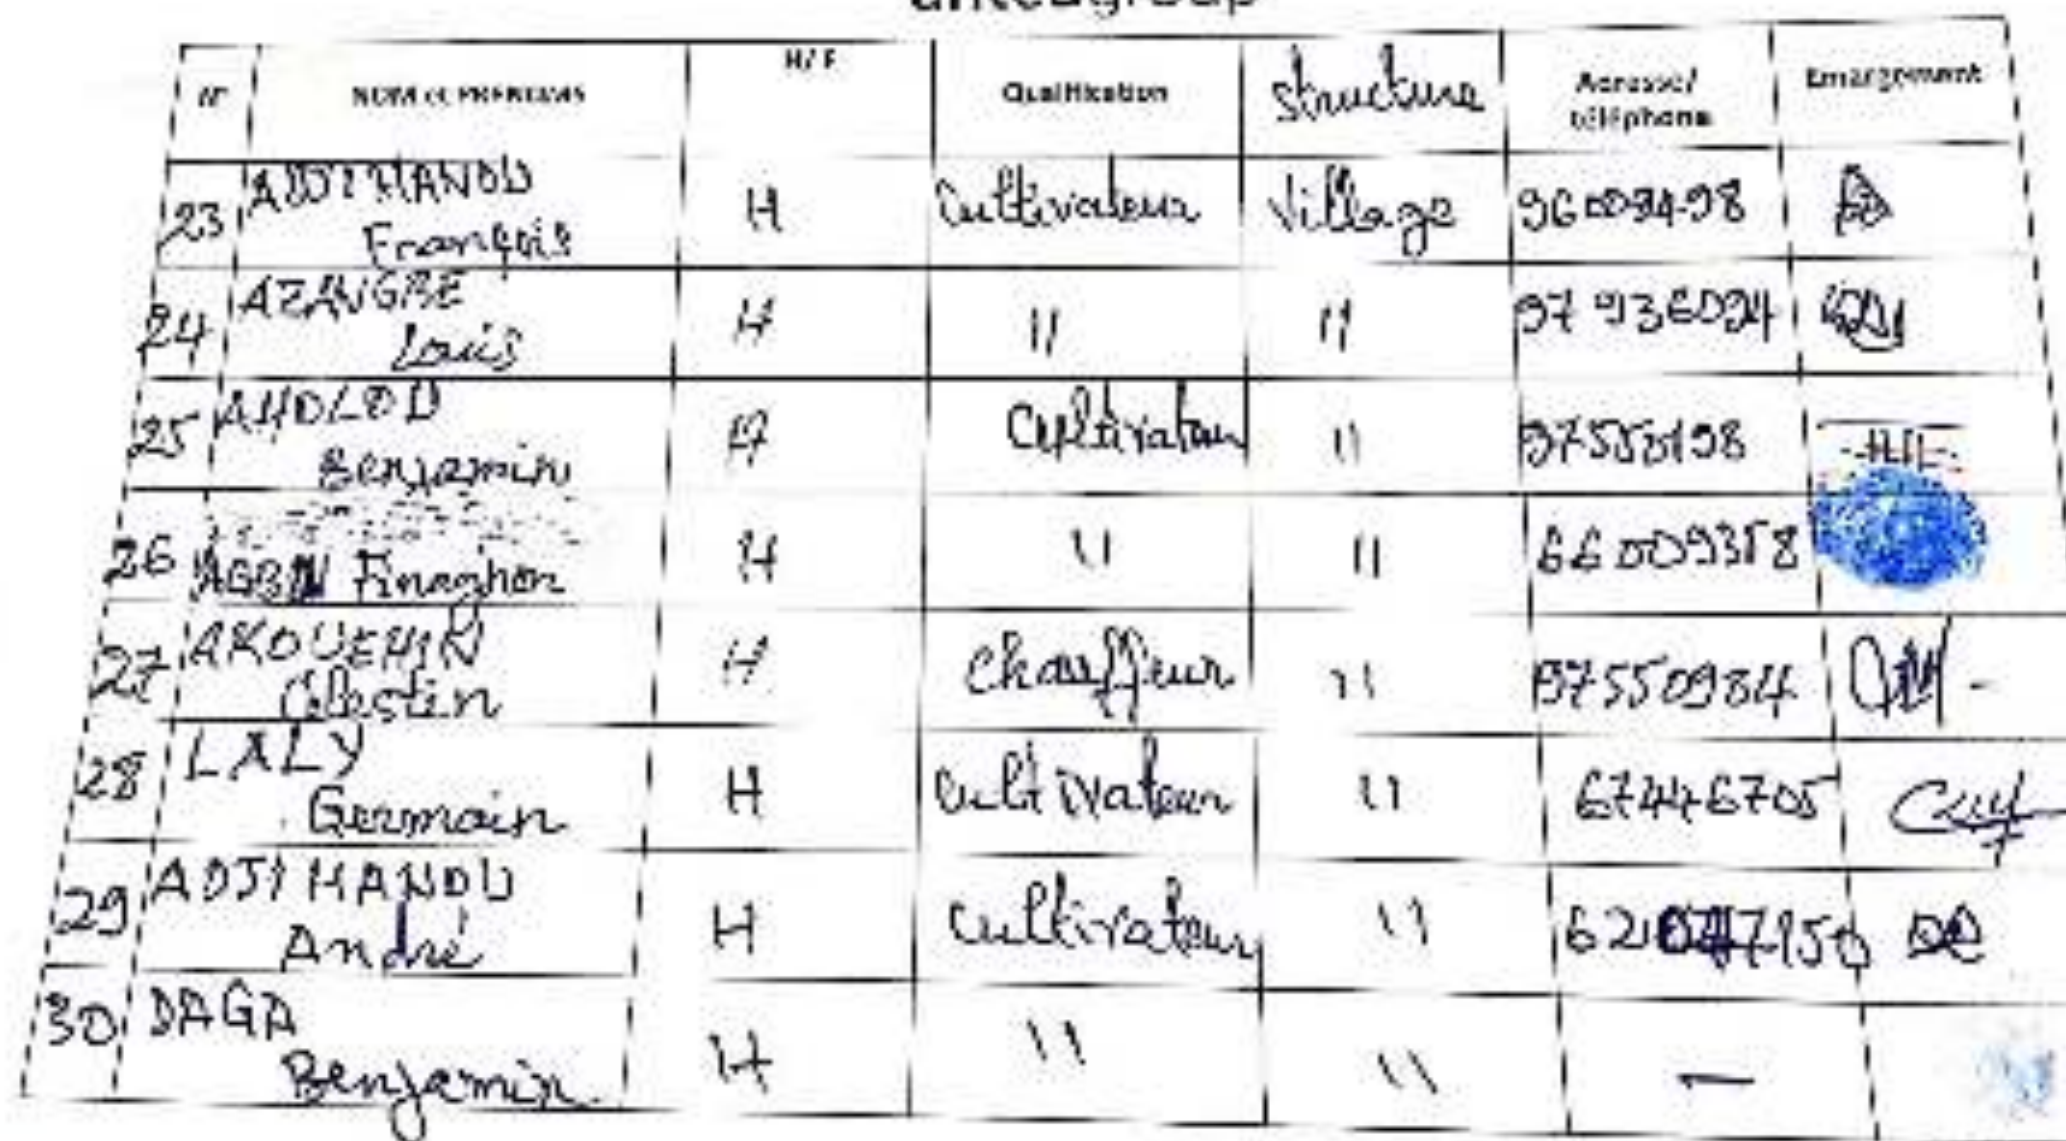 N° NOM et PRENOMS H/F Qualification Structure Adresse/ téléphone Emargement
23 ADJIHANOU François H Cultivateur Village
24 AZANGBE Louis H " "
25 AHOLOU Benjamin H Cultivateur "
26 Finagnon H " " 66009358
27 AKOUEHIN Célestin H Chauffeur " 97550984
28 LALY Germain H Cultivateur " 67446705
29 ADJIHANOU André H Cultivateur "
30 DAGA Benjamin H " " —